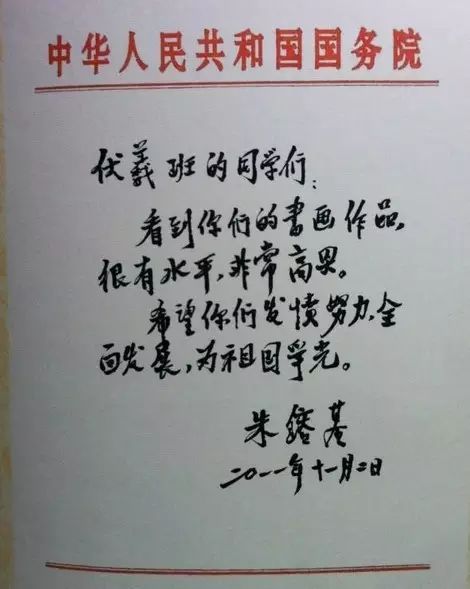 中华人民共和国国务院
伏羲班的同学们:
看到你们的书画作品,
很有水平,非常高兴。
希望你们发愤努力,全
面发展,为祖国争光。
朱镕基
二〇一一年十一月二日